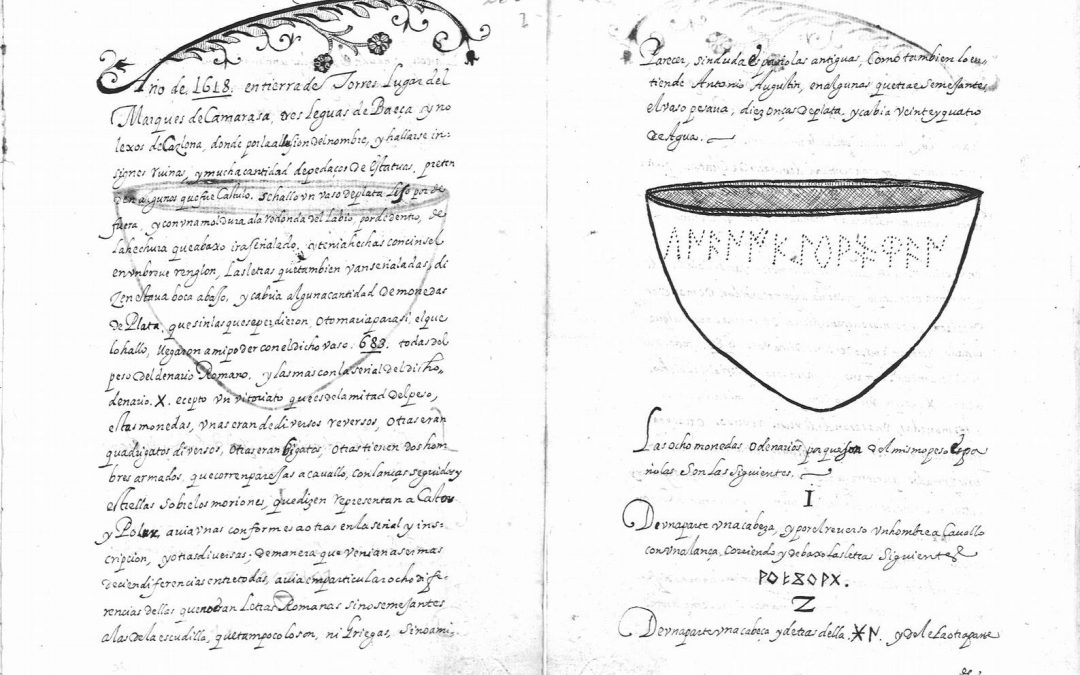 Año de 1618. en tierra de Torres Lugar del
Marques de Camarasa, tres leguas de Baeça y no
lexos de Cazlona, donde por la alusion del nombre, y hallarse in-
signes ruinas, y mucha cantidad de pedaços de estatuas, preten
den algunos que fue Castulo. se hallo un vaso de plata liso por de
fuera, y con una moldura a la redonda del labio, por de dentro, de
la hechura que abaxo ira señalado. y tenia hechas con cinsel
en un breve renglon, las letras que tambien van señaladas, di
zen estava boca abajo, y cabria alguna cantidad de monedas
de Plata, que sin las que se perdieron, o tomaria para si, el que
lo hallo, llegaron a mi poder con el dicho vaso. 683. todas del
peso del denario Romano. y las mas con la señal del dicho
denario. X. ecepto un vitoriato que es de la mitad del peso,
estas monedas, unas eran de diversos reversos, otras eran
quadrigatos diversos, otras eran bigatos, otras tienen dos hom
bres armados, que corren parejas a cavallo, con lanças seguidos y
estrellas sobre los moriones, que dizen representan a Castor
y Polux, avia unas conformes a otras en la señal y ins-
cripcion, y otras diversas; de manera que venian a ser mas
de cien diferencias entre todas, avia en particular ocho dife-
rencias dellas que no eran Letras Romanas sino semejantes
a las de la escudilla, que tampoco lo son, ni Griegas, sino a mi
Parecer, sin duda españolas antiguas, como tambien lo en-
tiende Antonio Augustin, en algunas que trae semejantes
el vaso pesava, diez onças de plata, y cabia veinte y quatro
de Agua.
Las ocho monedas o denarios, porque son del mismo peso espa
ñolas son las siguientes.
I
De una parte una cabeza, y por el reverso un hombre a Cavallo
con una lança, corriendo y debaxo las letras siguientes
2
De una parte una cabeça y detras della y de la otra parte